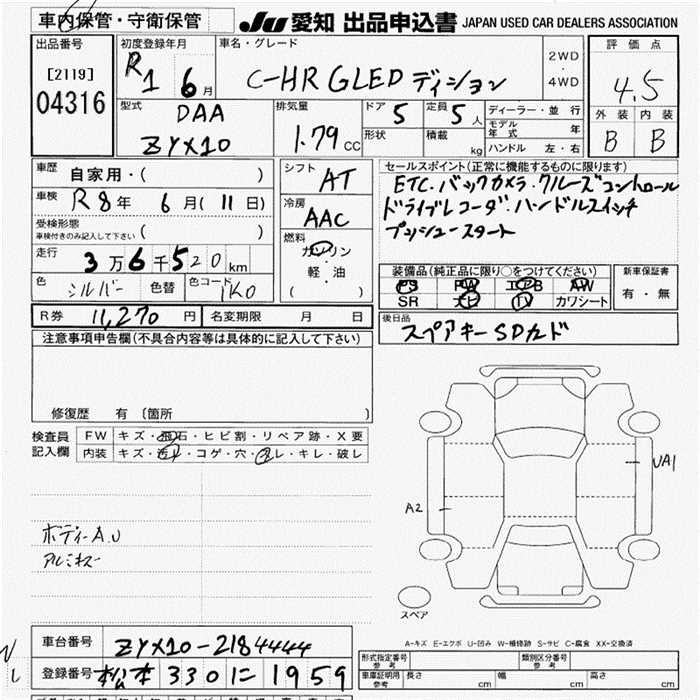 車内保管・守衛保管
JU 愛知 出品申込書 JAPAN USED CAR DEALERS ASSOCIATION
出品番号
[2119]
04316
初度登録年月
R1 6月
車名・グレード
C-HR GLED ディション
2WD
4WD
評価点
4.5
外装 内装
B B
型式
DAA
ZYX10
排気量
1.79 CC
ドア 5
定員 5人
形状
積載 kg
ディーラー・並行
モデル年式 年
ハンドル 左・右
車歴 自家用・( )
車検 R8年 6月(11日)
受検形態
車検付きのみ記入して下さい ( )
走行 3万6千520km
色 シルバー 色替 色コード 1K0
シフト AT
冷房 AAC
燃料
ガソリン
・
軽・油
( )
セールスポイント(正常に機能するものに限ります)
ETC.バックカメラ.クルーズコントロール
ドライブレコーダ.ハンドルスイッチ
プッシュースタート
装備品(純正品に限り○をつけてください)
PS PW エアB AW
SR ナビ TV カワシート
新車保証書
有・無
R券 11,270円 名変期限 月 日
後日品
スペアキーSDカード
注意事項申告欄(不具合内容等は具体的に記入して下さい)
修復歴 有〔箇所 〕
検査員記入欄
FW キズ・飛石・ヒビ割・リペア跡・X要
内装 キズ・汚れ・コゲ・穴・スレ・キレ・破レ
ボディーA.U
アルミキズ
A2
UA1
スペア
A-キズ E-エクボ U-凹み W-補修跡 S-サビ C-腐食 XX-交換済
車台番号 ZYX10-2184444
登録番号 松本 330 に 1959
形式指定番号
参考
類別区分番号
参考
車庫証明用
参考
長さ cm 幅 cm 高さ cm